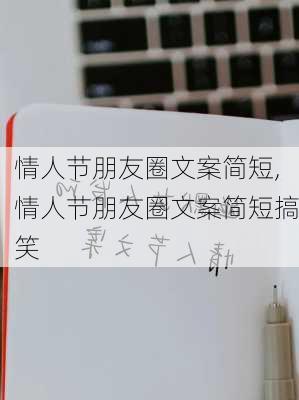 情人节朋友圈文案简短,
情人节朋友圈文案简短搞
笑
情人节文